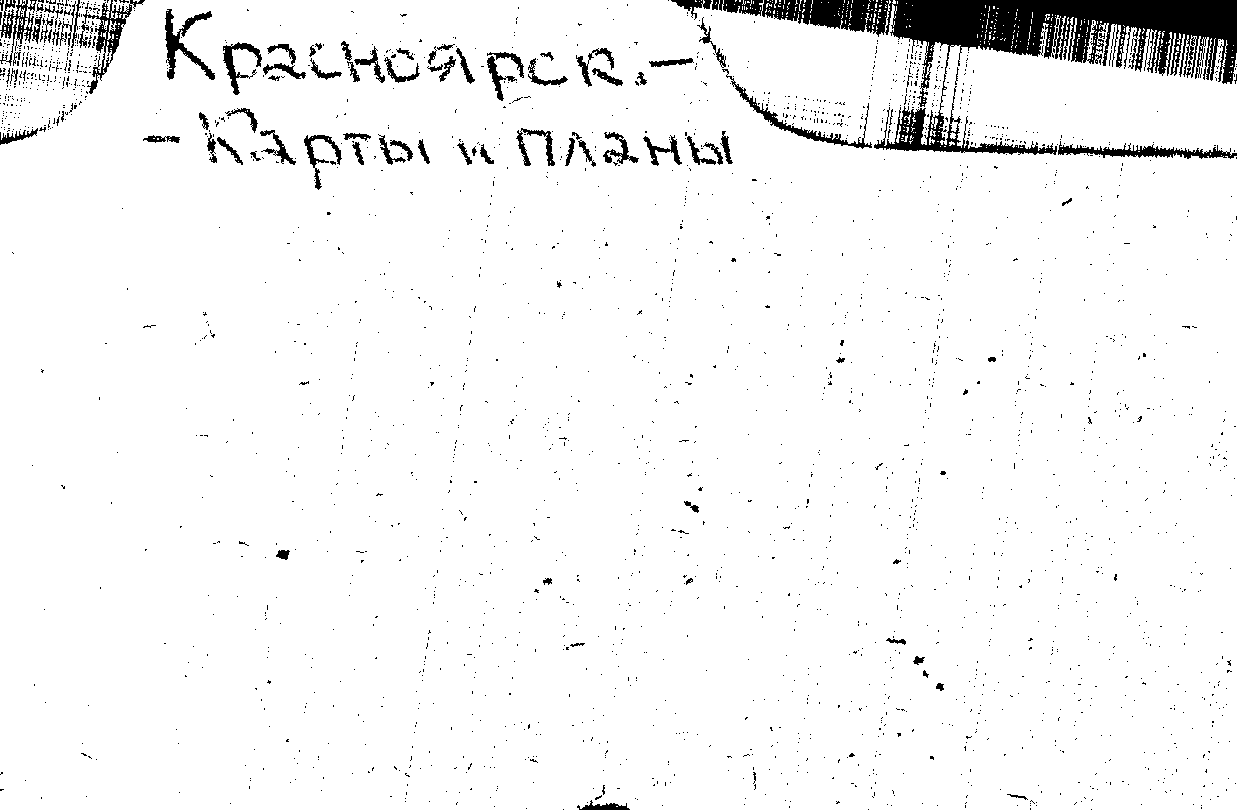 Красноярск. –
– Карты и планы